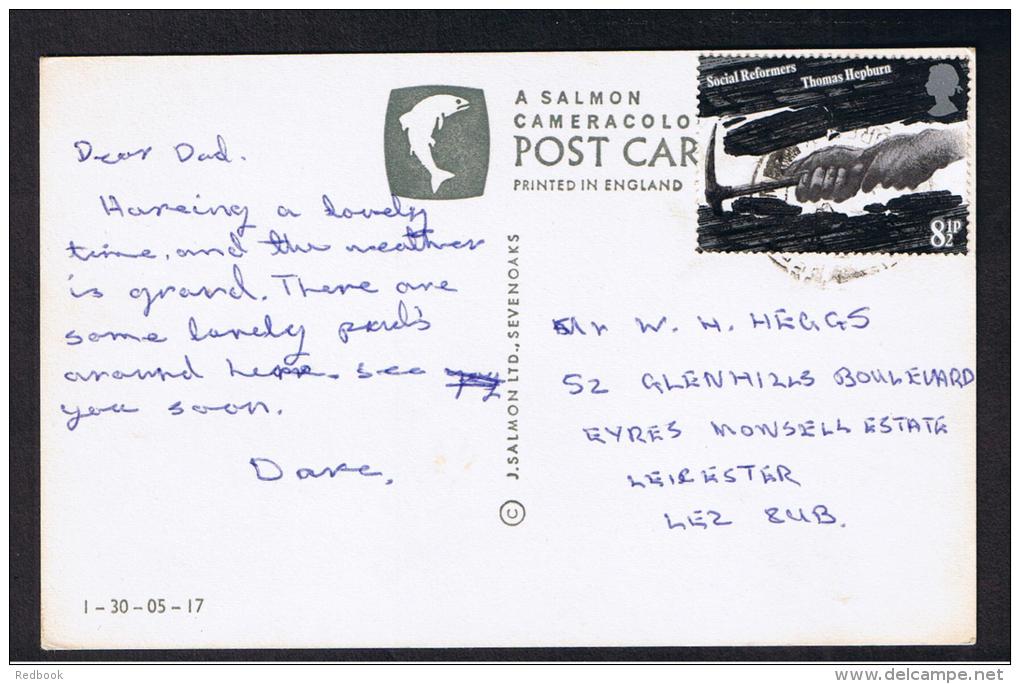 A SALMON
CAMERACOLO
POST CAR
PRINTED IN ENGLAND
Social Reformers Thomas Hepburn
8½P
Dear Dad.
Haveing a lovely
time, and the weather
is grand. There are
some lovely pub's
around here. see
you soon.
Dave.
© J. SALMON LTD., SEVENOAKS
Mr W. H. HEGGS
52 GLENHILLS BOULEVARD
EYRES MONSELL ESTATE
LEICESTER
LE2 8UB.
1-30-05-17
Redbook
www.delcampe.net